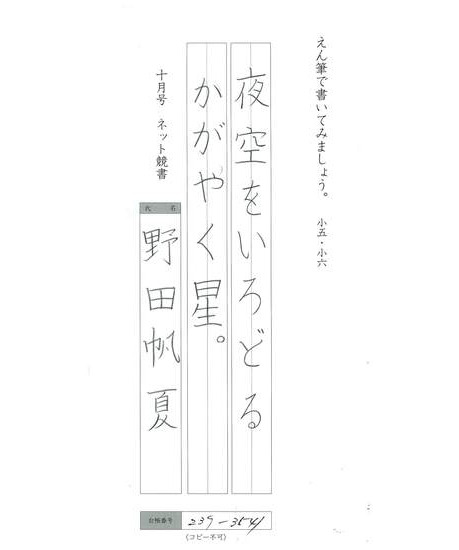 えん筆で書いてみましょう。 小五・小六
夜空をいろどる
かがやく星。
十月号 ネット競書
氏 名
野田帆夏
台帳番号 239-3541
(コピー不可)